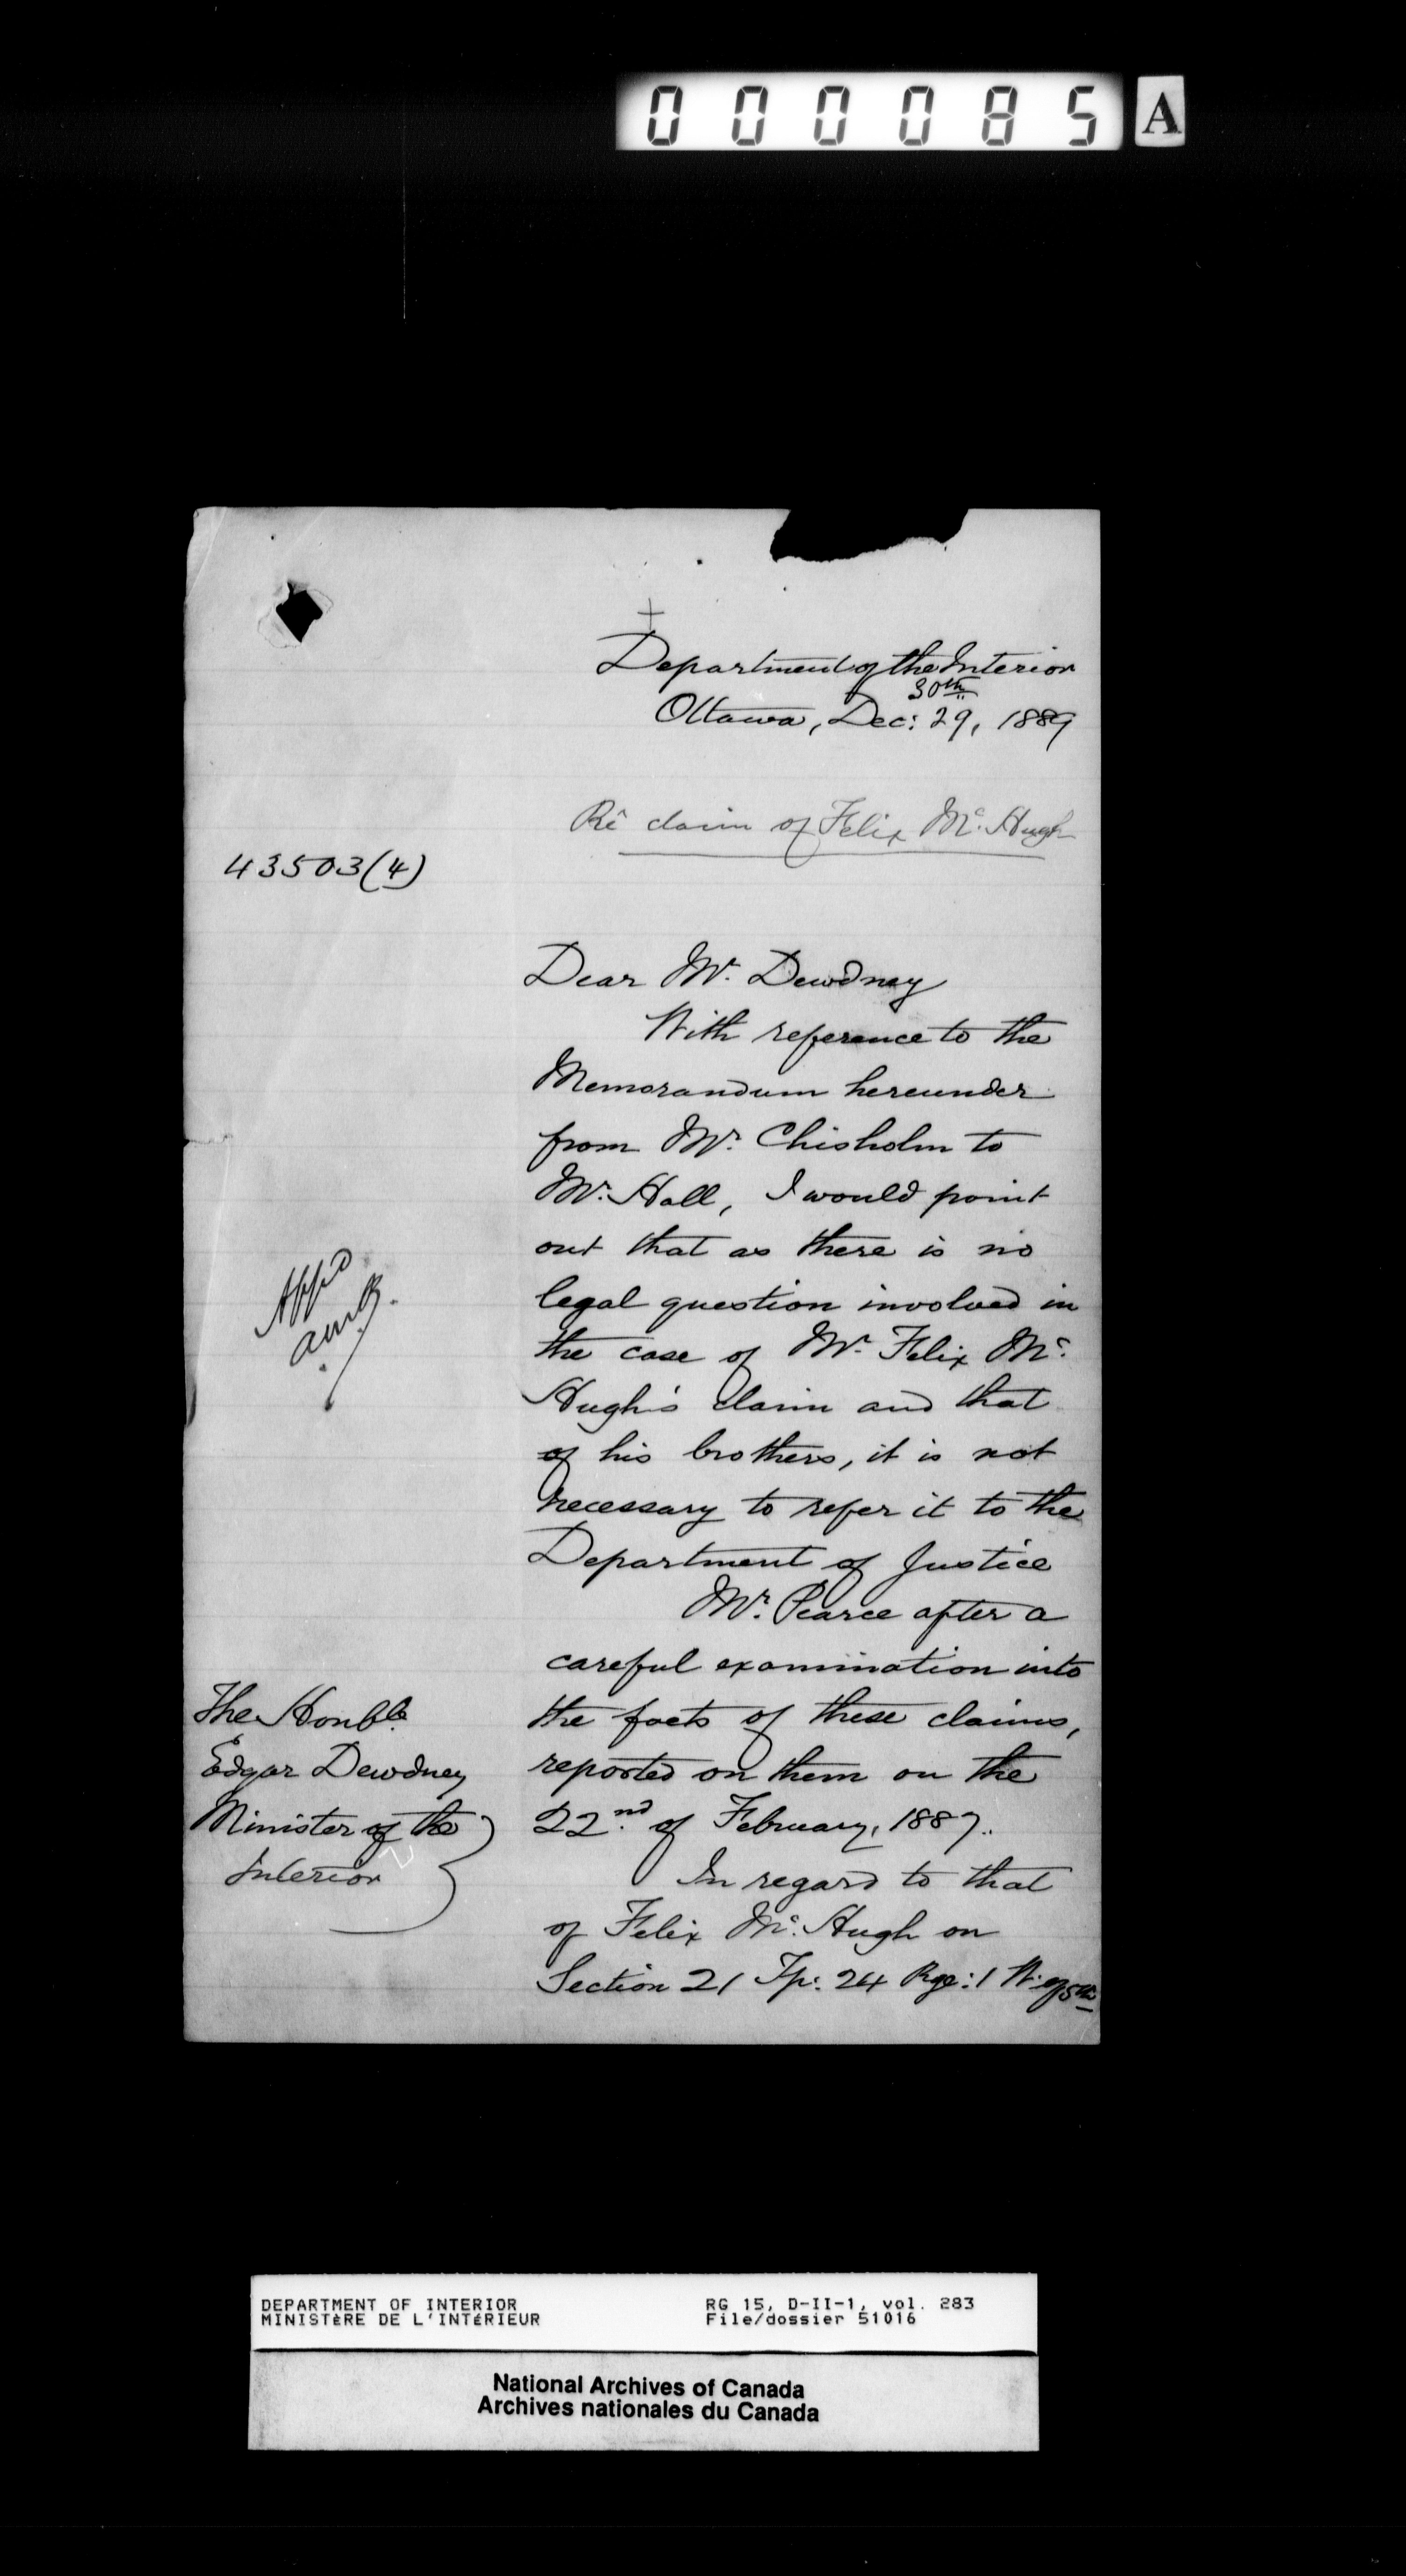 000085 A
Department of the Interior
30th
Ottawa, Dec: 29, 1889
Re claim of Felix Mc. Hugh
43503(4)
Dear Mr. Dewdney
With reference to the
Memorandum hereunder
from Mr. Chisholm to
Mr. Hall, I would point
out that as there is no
legal question involved in
the case of Mr. Felix Mc.
Hugh's claim and that
of his brothers, it is not
necessary to refer it to the
Department of Justice
Mr. Pearce after a
careful examination into
the facts of these claims,
reported on them on the
22nd. of February, 1887.
In regard to that
of Felix Mc. Hugh on
Section 21 Tp: 24 Rge: 1 W. of 5th
App'd
The Honble.
Edgar Dewdney
Minister of the
Interior
DEPARTMENT OF INTERIOR
MINISTÈRE DE L'INTÉRIEUR
RG 15, D-II-1, vol. 283
File/dossier 51016
National Archives of Canada
Archives nationales du Canada